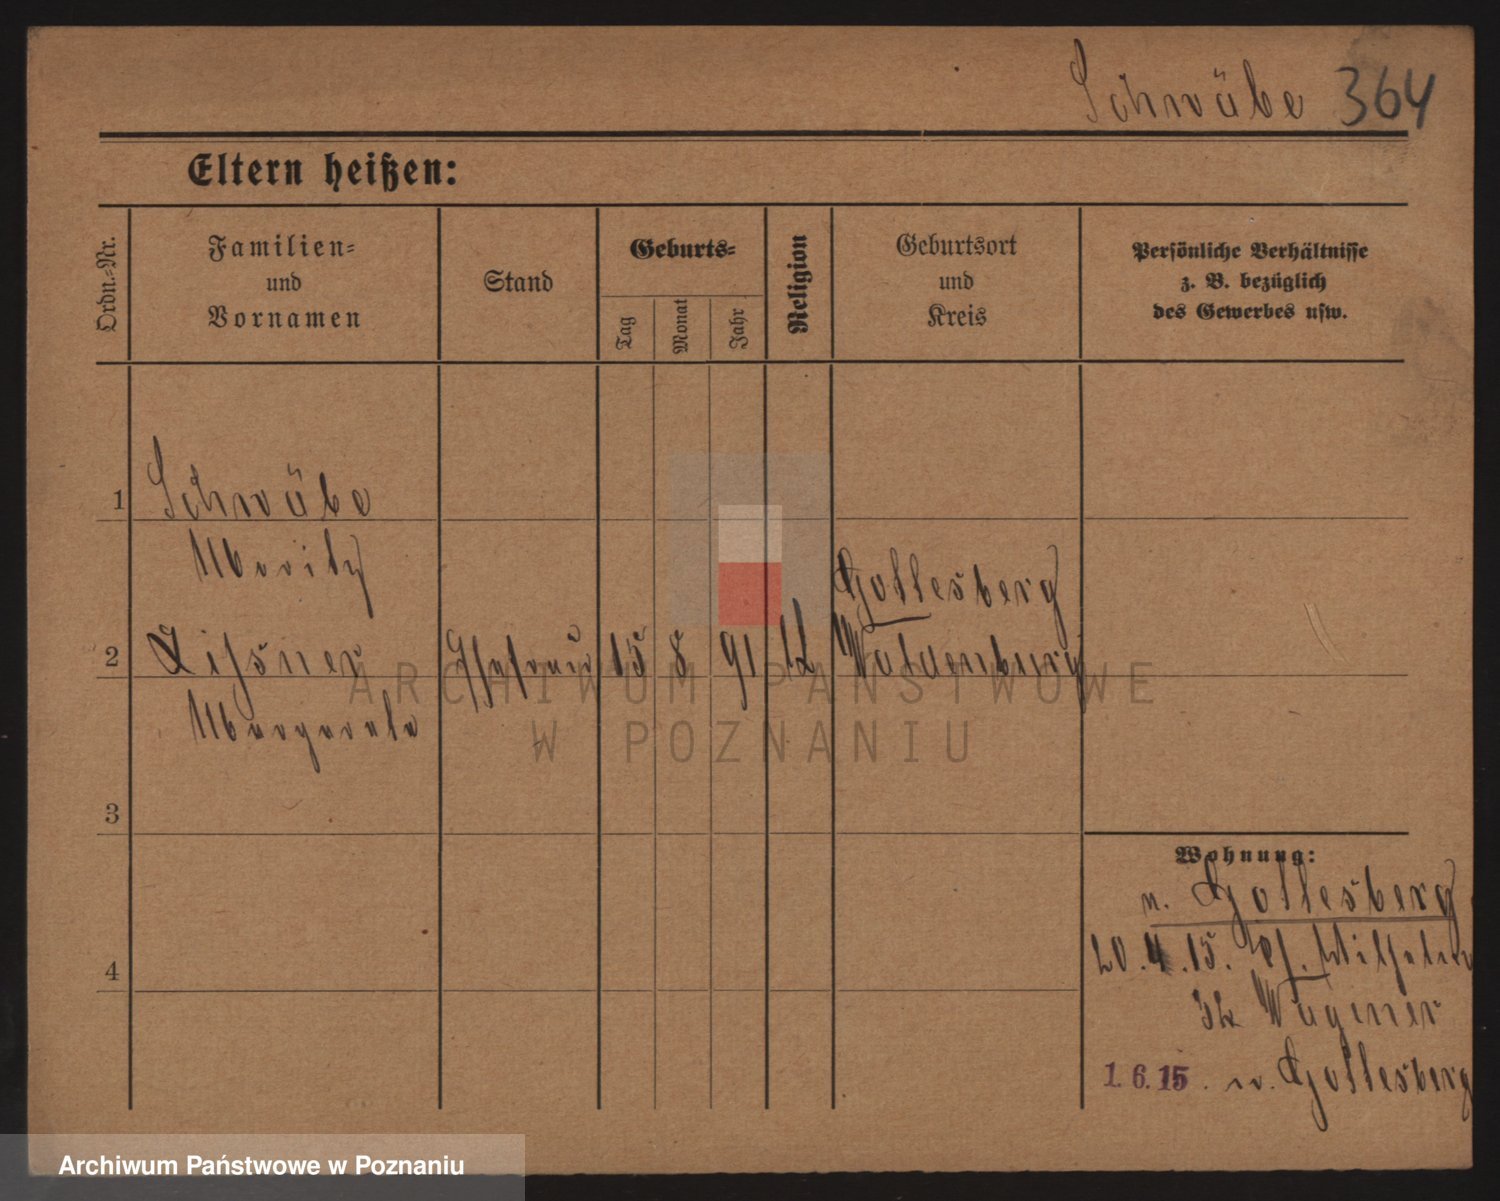 Schwäbe 364
Eltern heißen:
Ordn.-Nr.
Familien-
und
Vornamen
Stand
Geburts-
Tag
Monat
Jahr
Religion
Geburtsort
und
Kreis
Persönliche Verhältnisse
z. B. bezüglich
des Gewerbes usw.
1
Schwäbe
Moritz
Gottesberg
2
Ehefrau 15 8 91 Waldenburg
Margarete
ARCHIWUM PAŃSTWOWE
W POZNANIU
3
Wohnung:
n. Gottesberg
4
20.4.15. Wilhelm
32 Wagener
1.6.15. n. Gottesberg
Archiwum Państwowe w Poznaniu